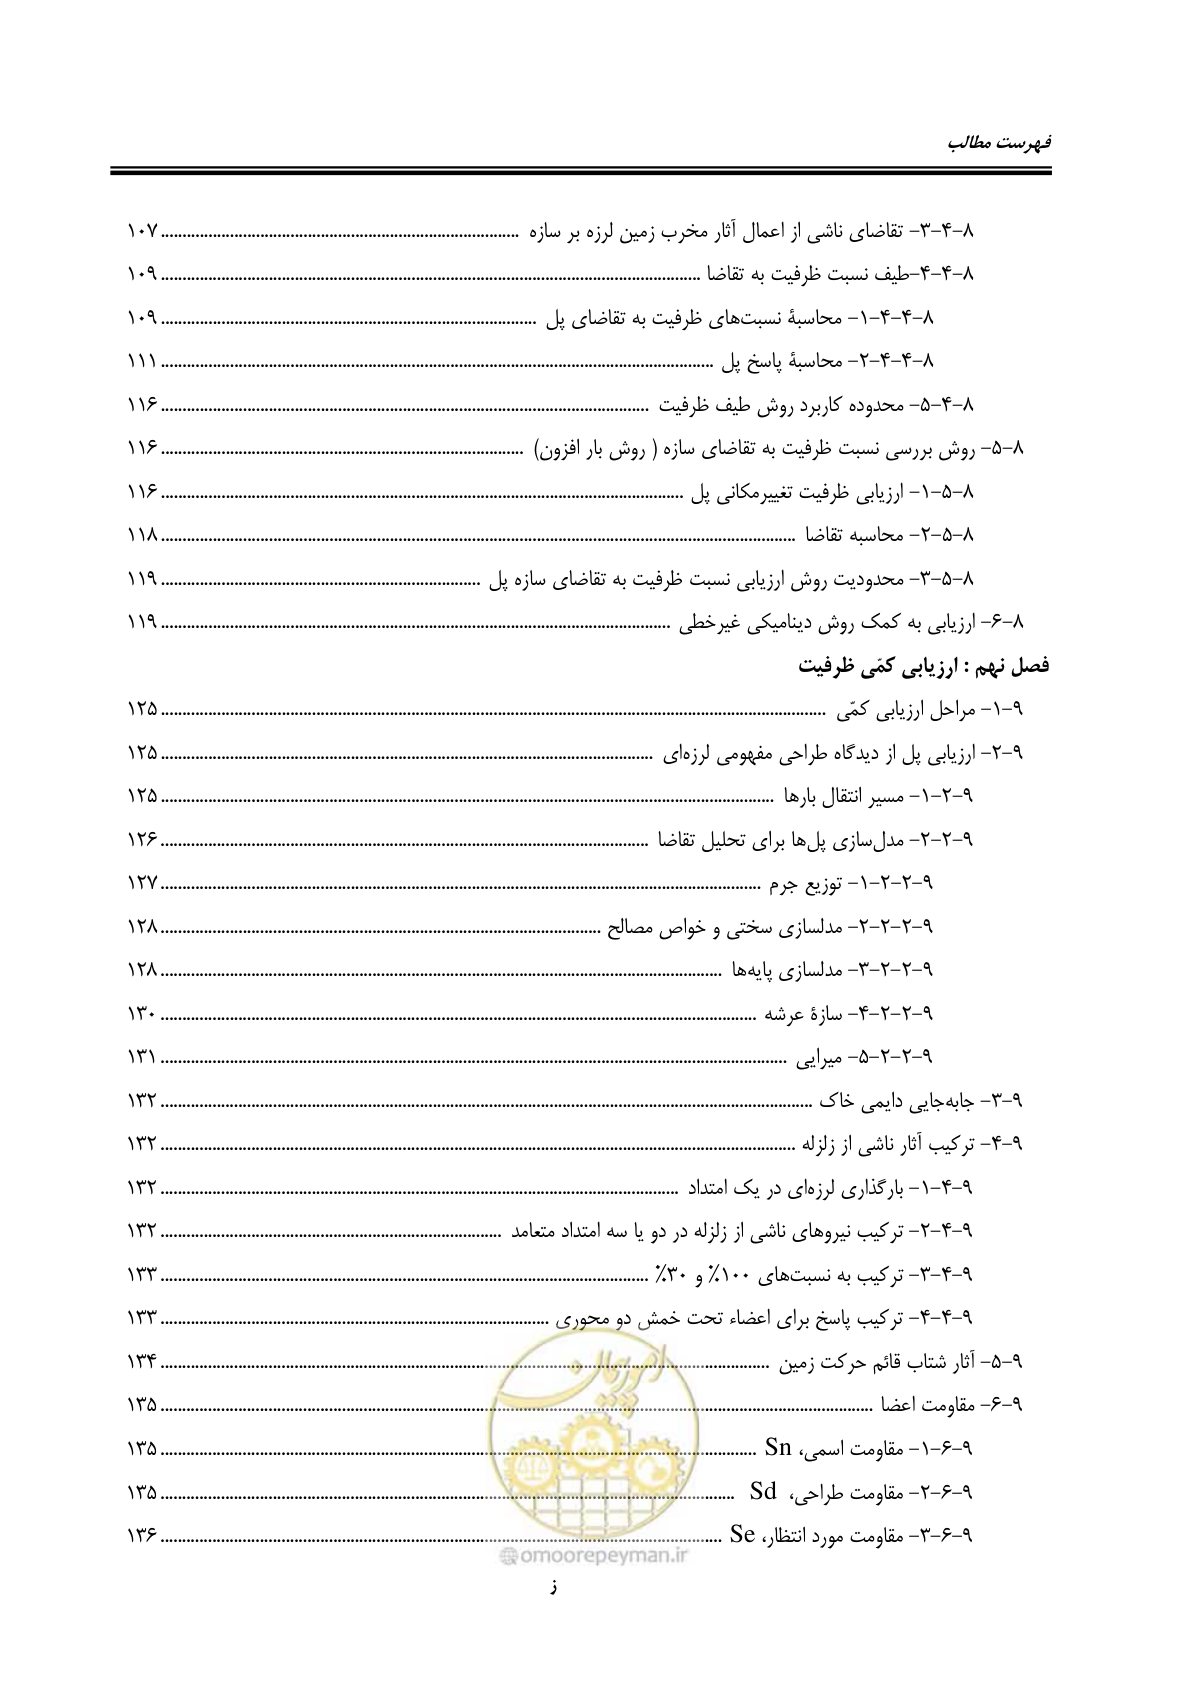 فهرست مطالب
۸-۴-۳- تقاضای ناشی از اعمال آثار مخرب زمین لرزه بر سازه ........ ۱۰۷
۸-۴-۴-طیف نسبت ظرفیت به تقاضا ........ ۱۰۹
۸-۴-۴-۱- محاسبۀ نسبت‌های ظرفیت به تقاضای پل ........ ۱۰۹
۸-۴-۴-۲- محاسبۀ پاسخ پل ........ ۱۱۱
۸-۴-۵- محدوده کاربرد روش طیف ظرفیت ........ ۱۱۶
۸-۵- روش بررسی نسبت ظرفیت به تقاضای سازه ( روش بار افزون) ........ ۱۱۶
۸-۵-۱- ارزیابی ظرفیت تغییرمکانی پل ........ ۱۱۶
۸-۵-۲- محاسبه تقاضا ........ ۱۱۸
۸-۵-۳- محدودیت روش ارزیابی نسبت ظرفیت به تقاضای سازه پل ........ ۱۱۹
۸-۶- ارزیابی به کمک روش دینامیکی غیرخطی ........ ۱۱۹
فصل نهم : ارزیابی کمّی ظرفیت
۹-۱- مراحل ارزیابی کمّی ........ ۱۲۵
۹-۲- ارزیابی پل از دیدگاه طراحی مفهومی لرزه‌ای ........ ۱۲۵
۹-۲-۱- مسیر انتقال بارها ........ ۱۲۵
۹-۲-۲- مدل‌سازی پل‌ها برای تحلیل تقاضا ........ ۱۲۶
۹-۲-۲-۱- توزیع جرم ........ ۱۲۷
۹-۲-۲-۲- مدلسازی سختی و خواص مصالح ........ ۱۲۸
۹-۲-۲-۳- مدلسازی پایه‌ها ........ ۱۲۸
۹-۲-۲-۴- سازۀ عرشه ........ ۱۳۰
۹-۲-۲-۵- میرایی ........ ۱۳۱
۹-۳- جابه‌جایی دایمی خاک ........ ۱۳۲
۹-۴- ترکیب آثار ناشی از زلزله ........ ۱۳۲
۹-۴-۱- بارگذاری لرزه‌ای در یک امتداد ........ ۱۳۲
۹-۴-۲- ترکیب نیروهای ناشی از زلزله در دو یا سه امتداد متعامد ........ ۱۳۲
۹-۴-۳- ترکیب به نسبت‌های ۱۰۰٪ و ۳۰٪ ........ ۱۳۳
۹-۴-۴- ترکیب پاسخ برای اعضاء تحت خمش دو محوری ........ ۱۳۳
۹-۵- آثار شتاب قائم حرکت زمین ........ ۱۳۴
۹-۶- مقاومت اعضا ........ ۱۳۵
۹-۶-۱- مقاومت اسمی، Sn ........ ۱۳۵
۹-۶-۲- مقاومت طراحی، Sd ........ ۱۳۵
۹-۶-۳- مقاومت مورد انتظار، Se ........ ۱۳۶
امور پیمان
@omoorepeyman.ir
ز